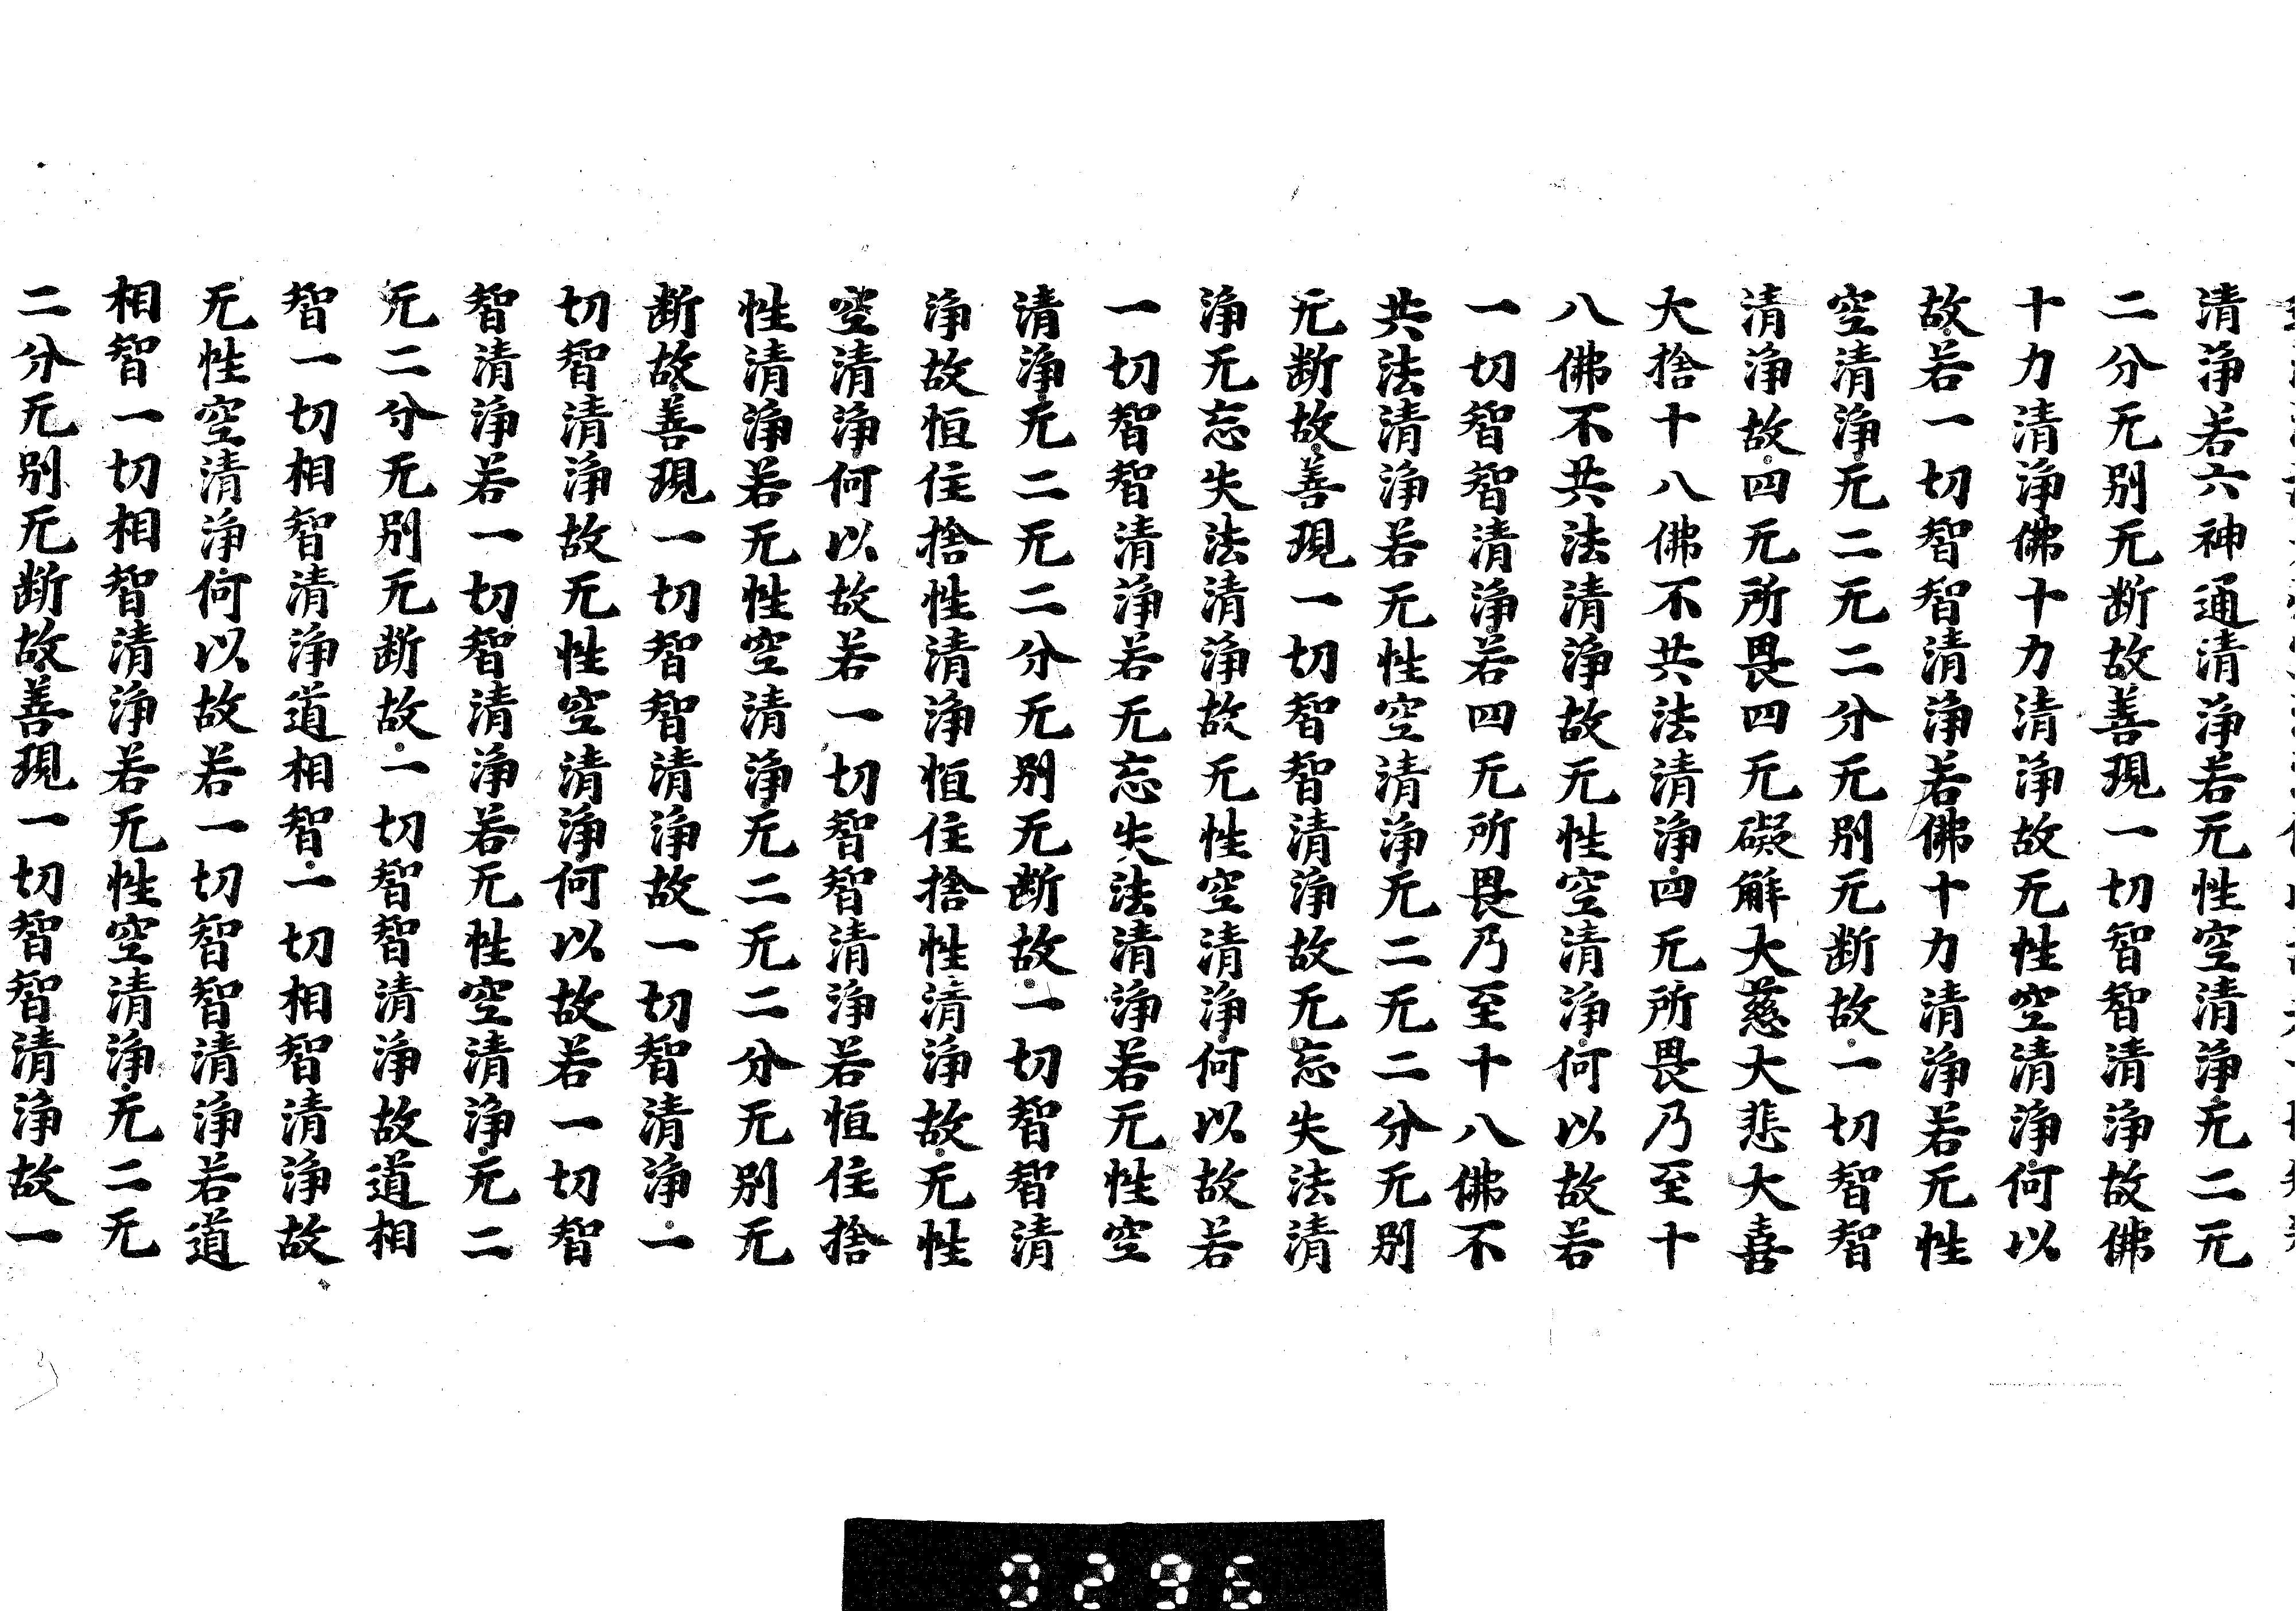 清浄若六神通清浄若无性空清浄无二无
二分无別无断故善現一切智智清浄故佛
十力清浄佛十力清浄故无性空清浄何以
故若一切智智清浄若佛十力清浄若无性
空清浄无二无二分无別无断故一切智智
清浄故四无所畏四无礙解大慈大悲大喜
大捨十八佛不共法清浄四无所畏乃至十
八佛不共法清浄故无性空清浄何以故若
一切智智清浄若四无所畏乃至十八佛不
共法清浄若无性空清浄无二无二分无別
无断故善現一切智智清浄故无忘失法清
浄无忘失法清浄故无性空清浄何以故若
一切智智清浄若无忘失法清浄若无性空
清浄无二无二分无別无断故一切智智清
浄故恒住捨性清浄恒住捨性清浄故无性
空清浄何以故若一切智智清浄若恒住捨
性清浄若无性空清浄无二无二分无別无
断故善現一切智智清浄故一切智清浄一
切智清浄故无性空清浄何以故若一切智
智清浄若一切智清浄若无性空清浄无二
无二分无別无断故一切智智清浄故道相
智一切相智清浄道相智一切相智清浄故
无性空清浄何以故若一切智智清浄若道
相智一切相智清浄若无性空清浄无二无
二分无別无断故善現一切智智清浄故一
0296